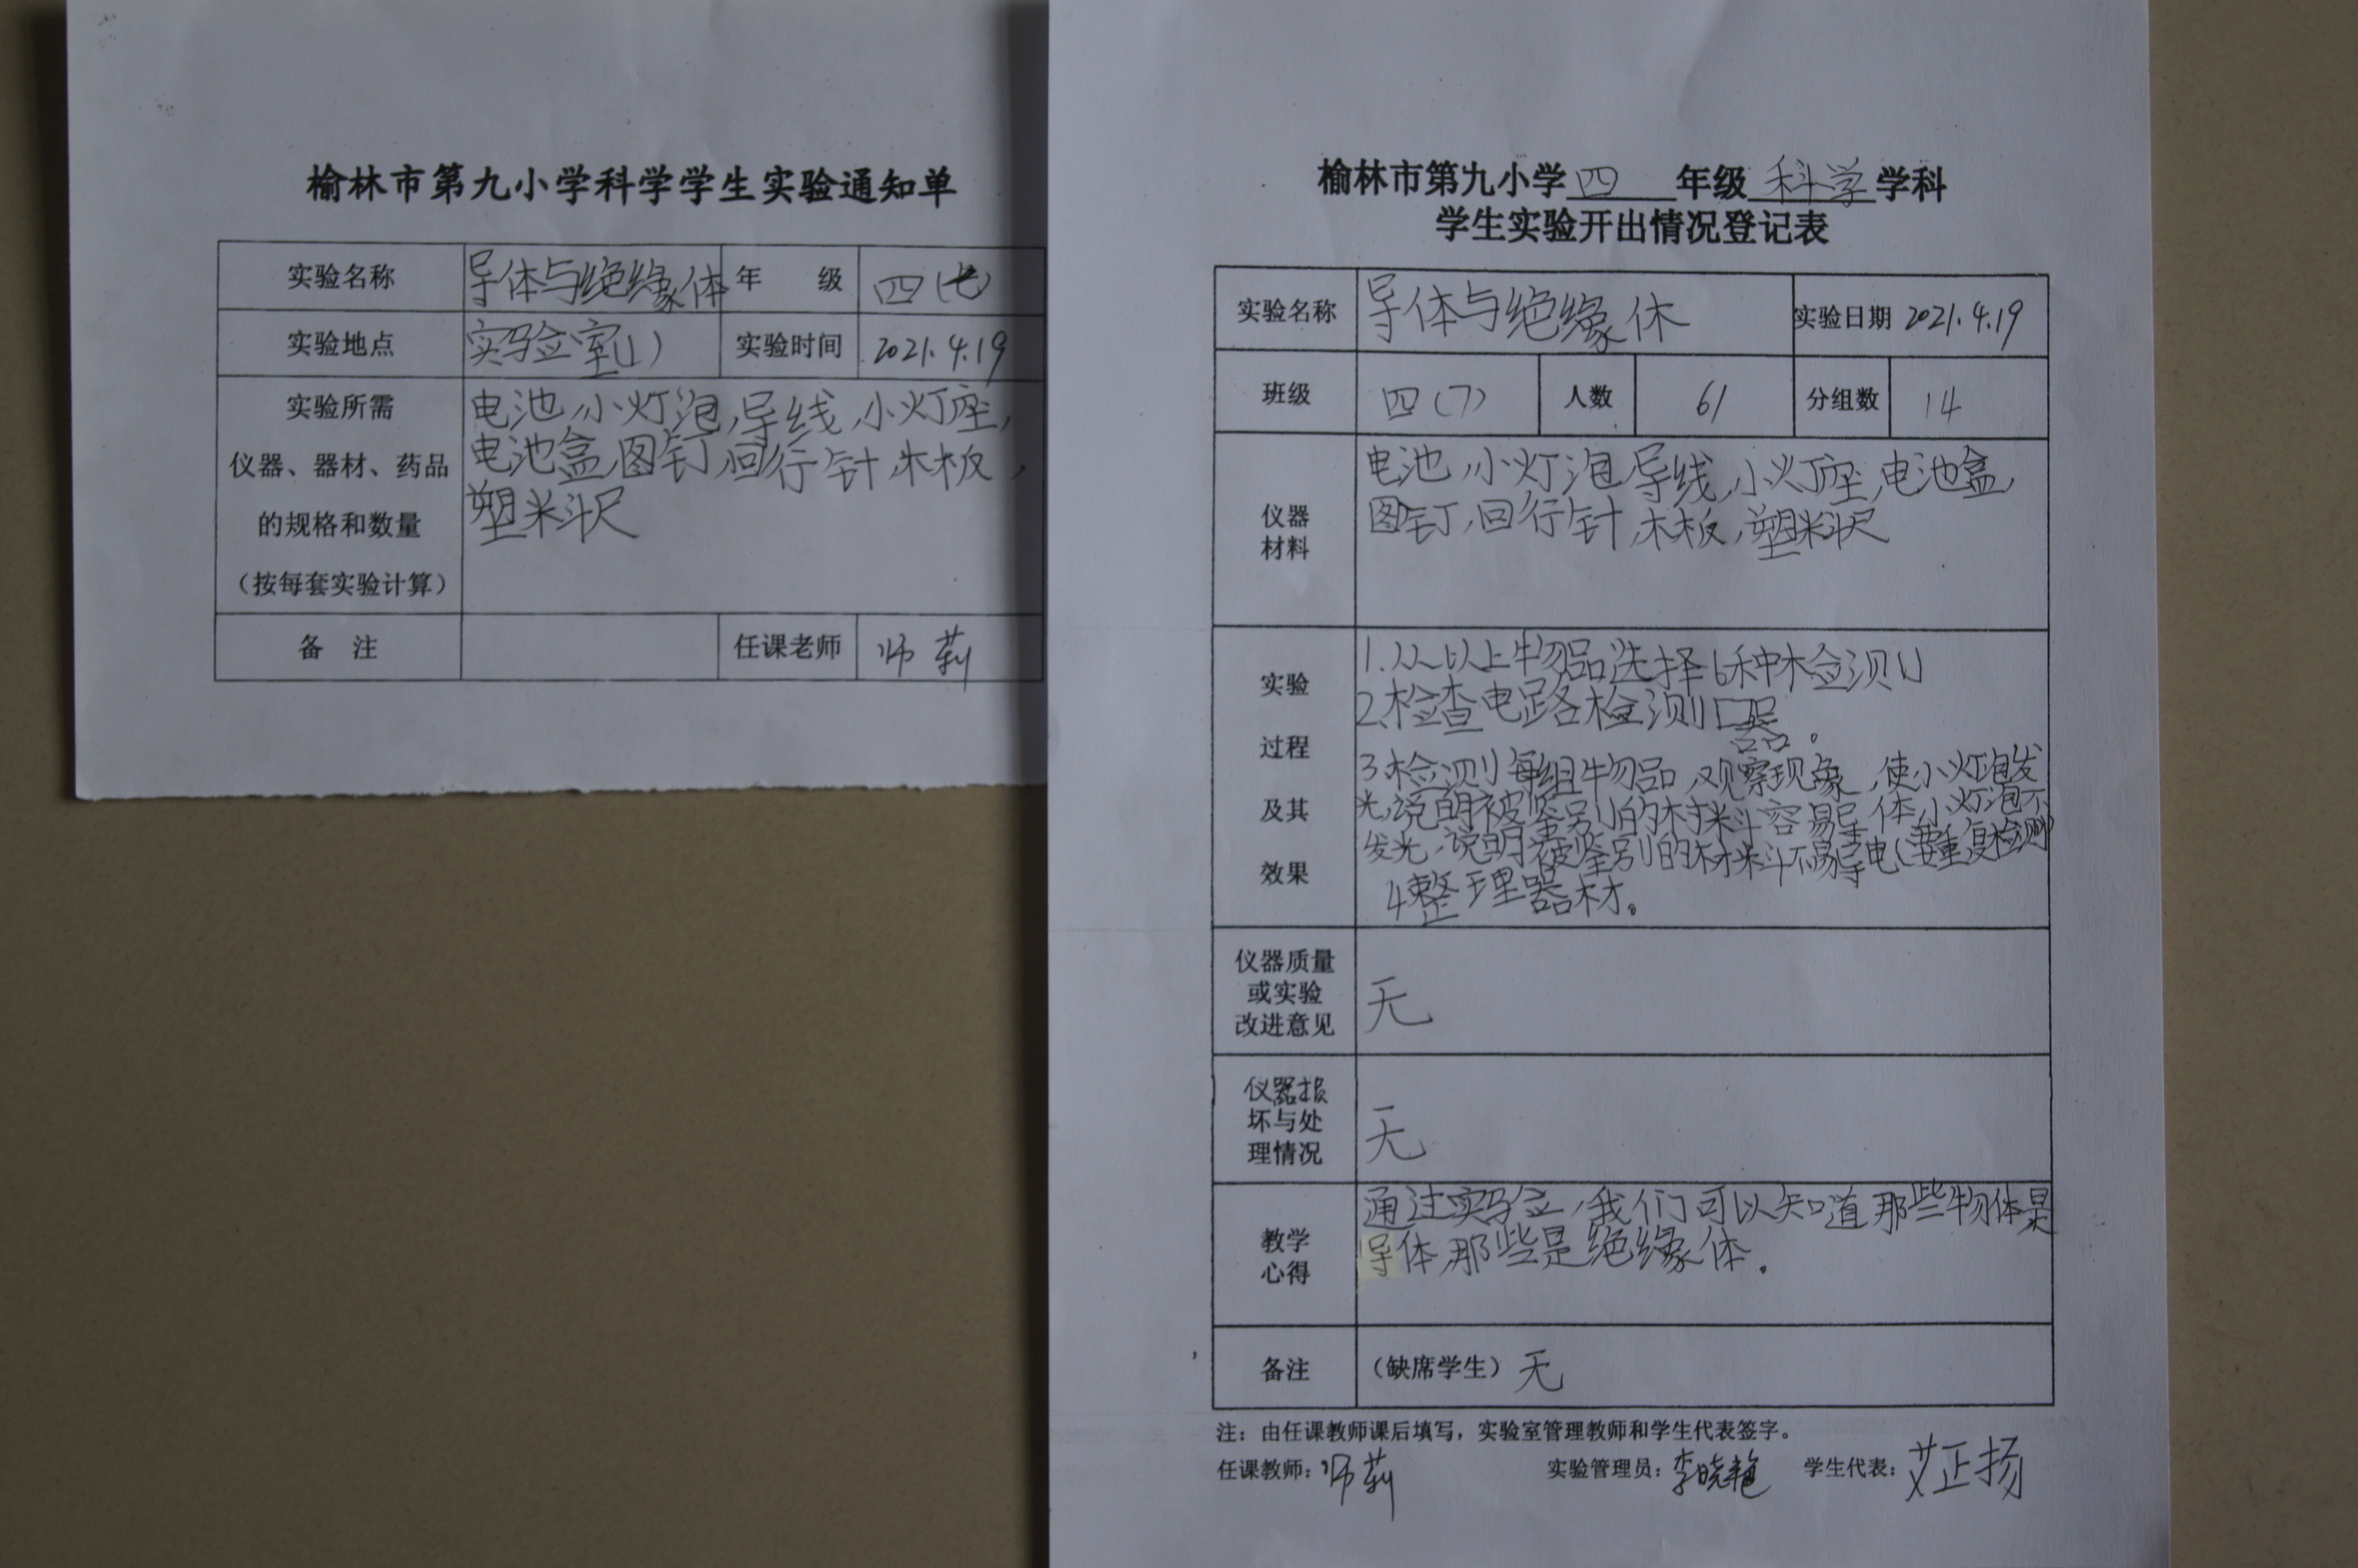 榆林市第九小学科学学生实验通知单
实验名称 导体与绝缘体 年 级 四(七)
实验地点 实验室(1) 实验时间 2021.4.19
实验所需
仪器、器材、药品
的规格和数量
(按每套实验计算)
电池,小灯泡,导线,小灯座,
电池盒,图钉,回行针,木板,
塑料尺
备 注 任课老师 师莉
榆林市第九小学四年级科学学科
学生实验开出情况登记表
实验名称 导体与绝缘体 实验日期 2021.4.19
班级 四(7) 人数 61 分组数 14
仪器
材料
电池,小灯泡,导线,小灯座,电池盒,
图钉,回行针,木板,塑料尺
实验
过程
及其
效果
1.从以上物品选择6种检测
2.检查电路检测器。
3.检测每组物品,观察现象,使小灯泡发
光,说明被鉴别的材料容易导体,小灯泡不
发光,说明被鉴别的材料不易导电(要重复检测)
4整理器材。
仪器质量
或实验
改进意见
无
仪器损
坏与处
理情况
无
教学
心得
通过实验,我们可以知道那些物体是
导体,那些是绝缘体。
备注 (缺席学生)无
注:由任课教师课后填写,实验室管理教师和学生代表签字。
任课教师:师莉 实验管理员:李晓艳 学生代表:艾正扬